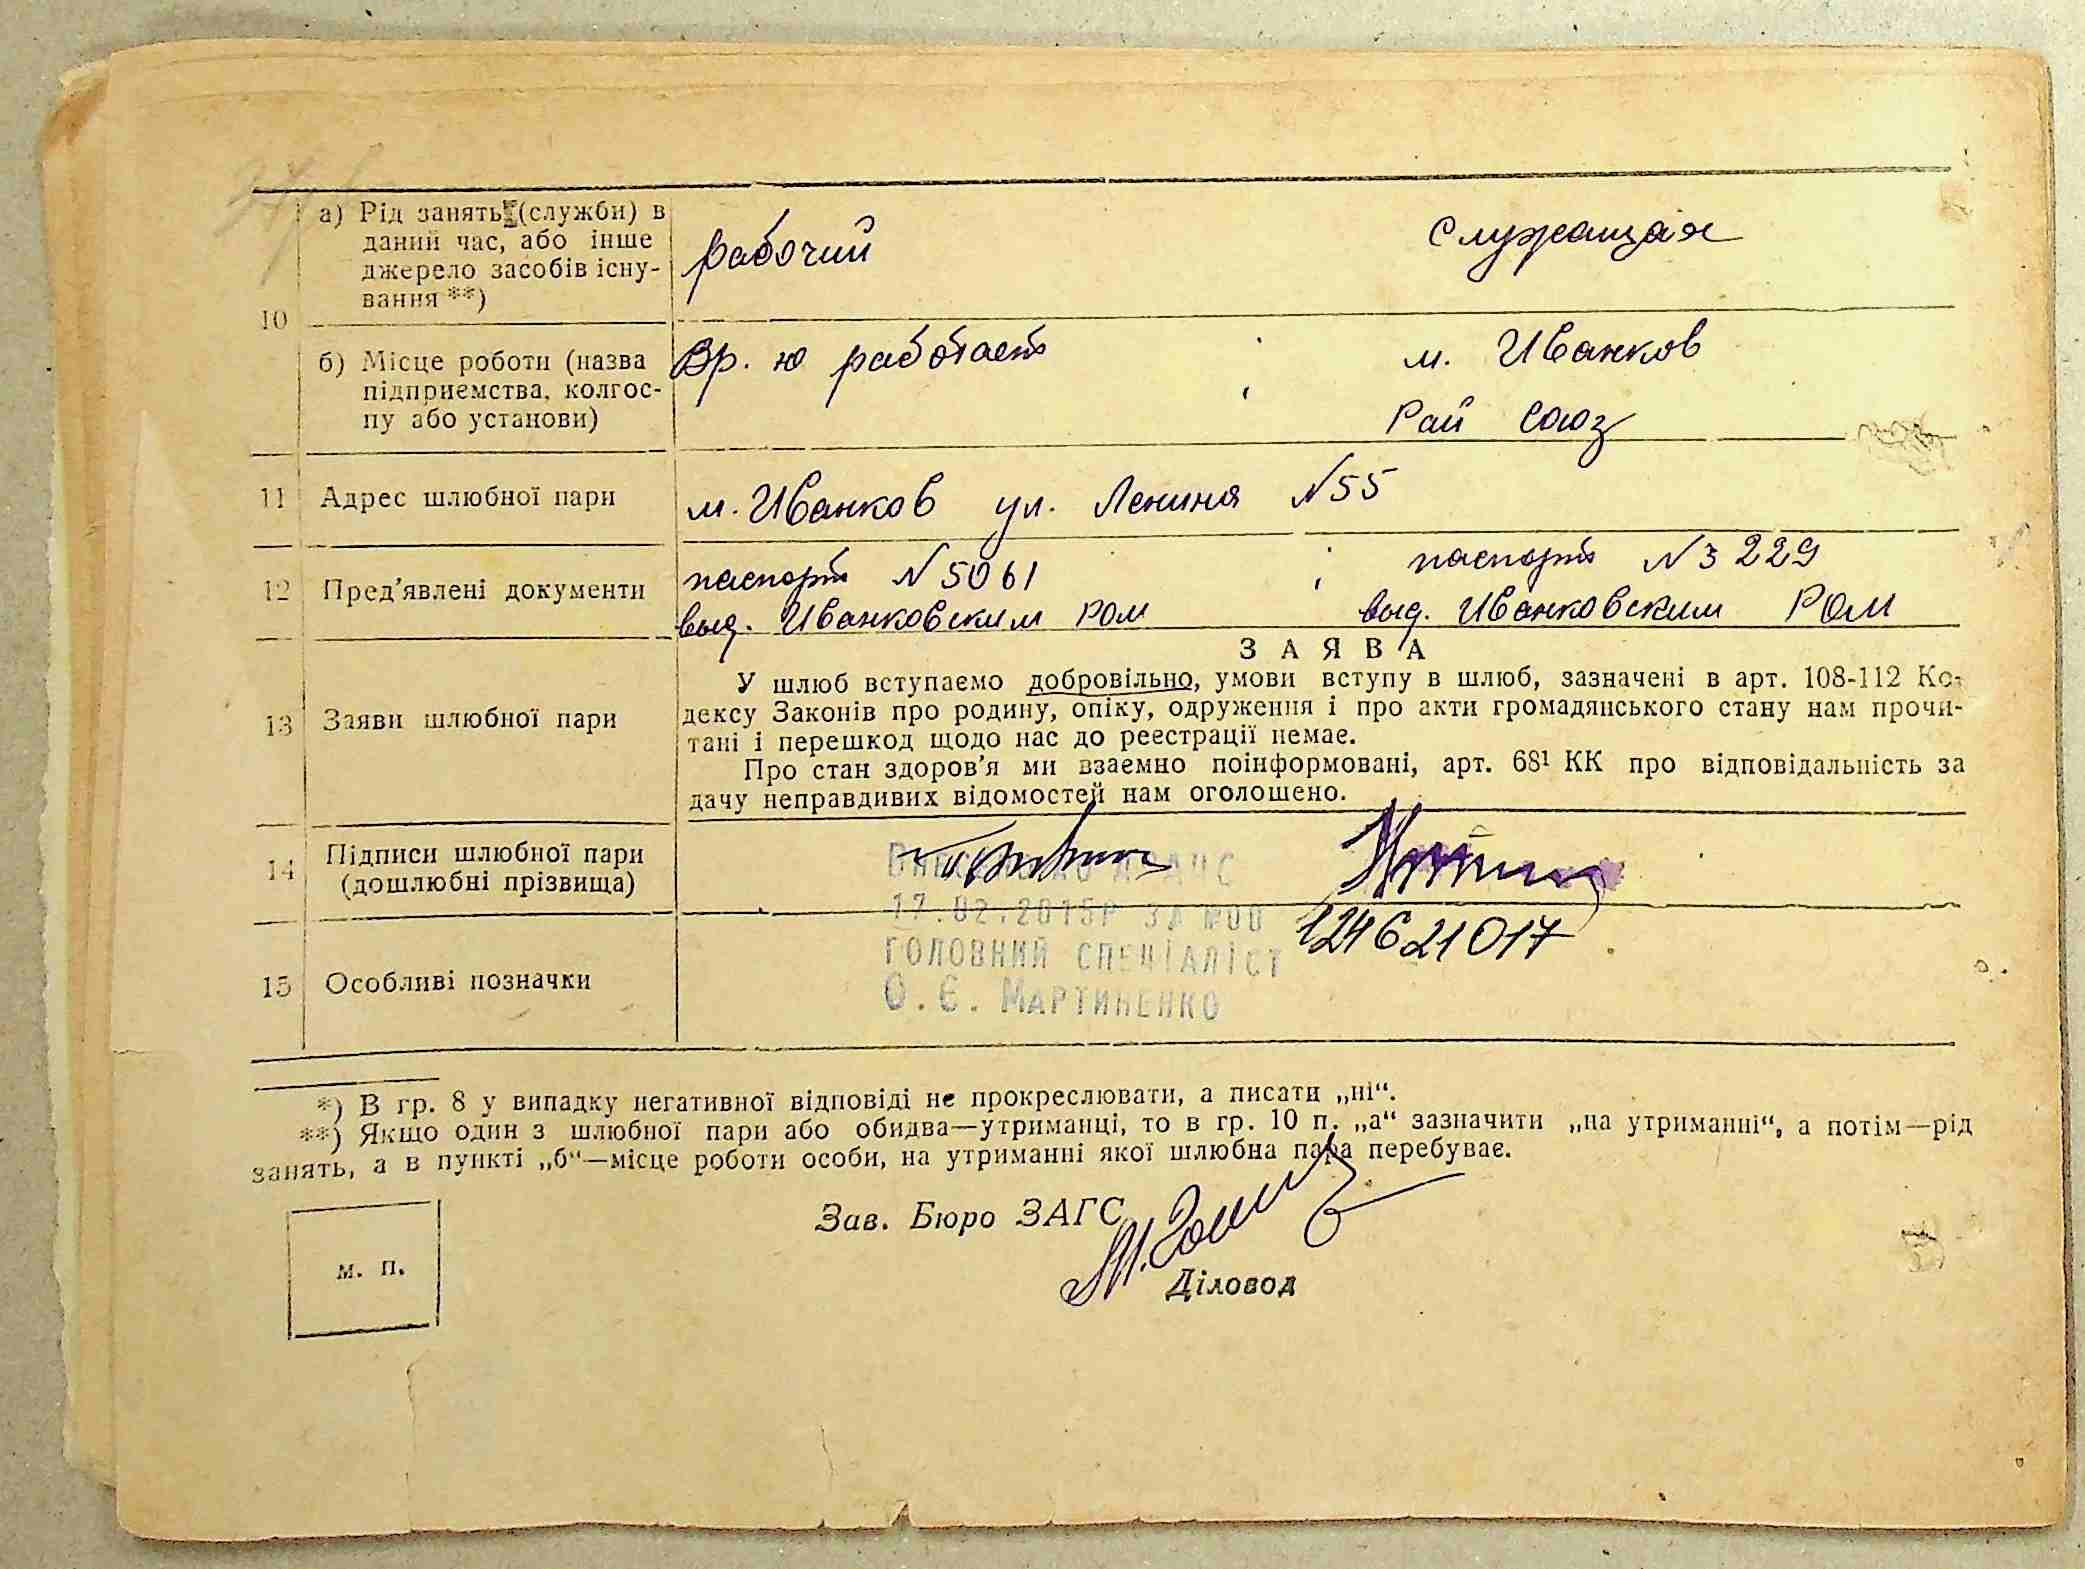 а) Рід занять (служби) в
даний час, або інше
джерело засобів існу-
вання **)
рабочий
Служащая
10
б) Місце роботи (назва
підприємства, колгос-
пу або установи)
Вр. ю работает
м. Иванков
Рай Союз
11 Адрес шлюбної пари
м. Иванков ул. Ленина №55
12 Пред'явлені документи
паспорт №5061
выд. Иванковским РОМ
паспорт №3229
выд. Иванковским РОМ
13 Заяви шлюбної пари
ЗАЯВА
У шлюб вступаємо добровільно, умови вступу в шлюб, зазначені в арт. 108-112 Ко-
дексу Законів про родину, опіку, одруження і про акти громадянського стану нам прочи-
тані і перешкод щодо нас до реєстрації немає.
Про стан здоров'я ми взаємно поінформовані, арт. 68¹ КК про відповідальність за
дачу неправдивих відомостей нам оголошено.
14 Підписи шлюбної пари
(дошлюбні прізвища)
17.02.2015р за №00
124621017
ГОЛОВНИЙ СПЕЦІАЛІСТ
О.Є. МАРТИНЕНКО
15 Особливі позначки
*) В гр. 8 у випадку негативної відповіді не прокреслювати, а писати „ні“.
**) Якщо один з шлюбної пари або обидва—утриманці, то в гр. 10 п. „а“ зазначити „на утриманні“, а потім—рід
занять, а в пункті „б“—місце роботи особи, на утриманні якої шлюбна пара перебуває.
Зав. Бюро ЗАГС
м. п.
Діловод